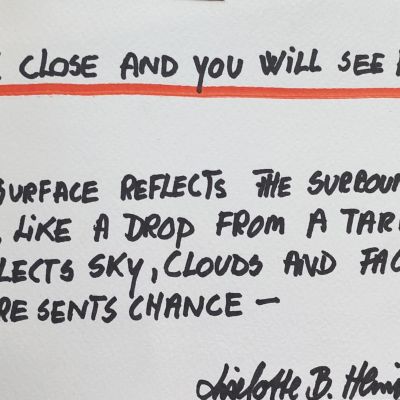 CLOSE AND YOU WILL SEE
SURFACE REFLECTS THE SURROUN
LIKE A DROP FROM A TAR
LECTS SKY, CLOUDS AND FAC
RESENTS CHANCE —
Liselotte B.